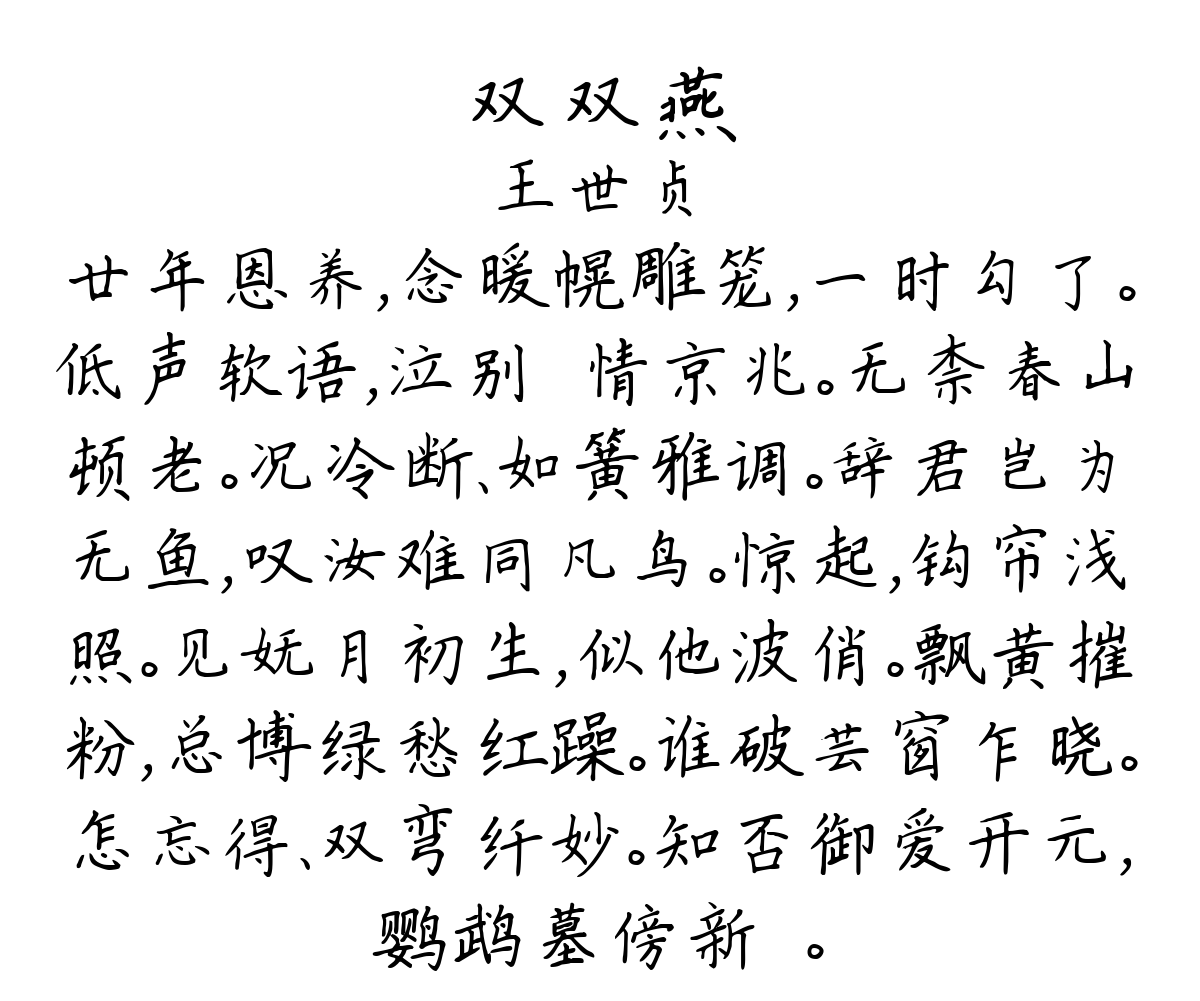 双双燕
王世贞
廿年恩养,念暖幌雕笼,一时勾了。
低声软语,泣别 情京兆。无柰春山
顿老。况冷断、如簧雅调。辞君岂为
无鱼,叹汝难同凡鸟。惊起,钩帘浅
照。见妩月初生,似他波俏。飘黄摧
粉,总博绿愁红躁。谁破芸窗乍晓。
怎忘得、双弯纤妙。知否御爱开元,
鹦鹉墓傍新 。